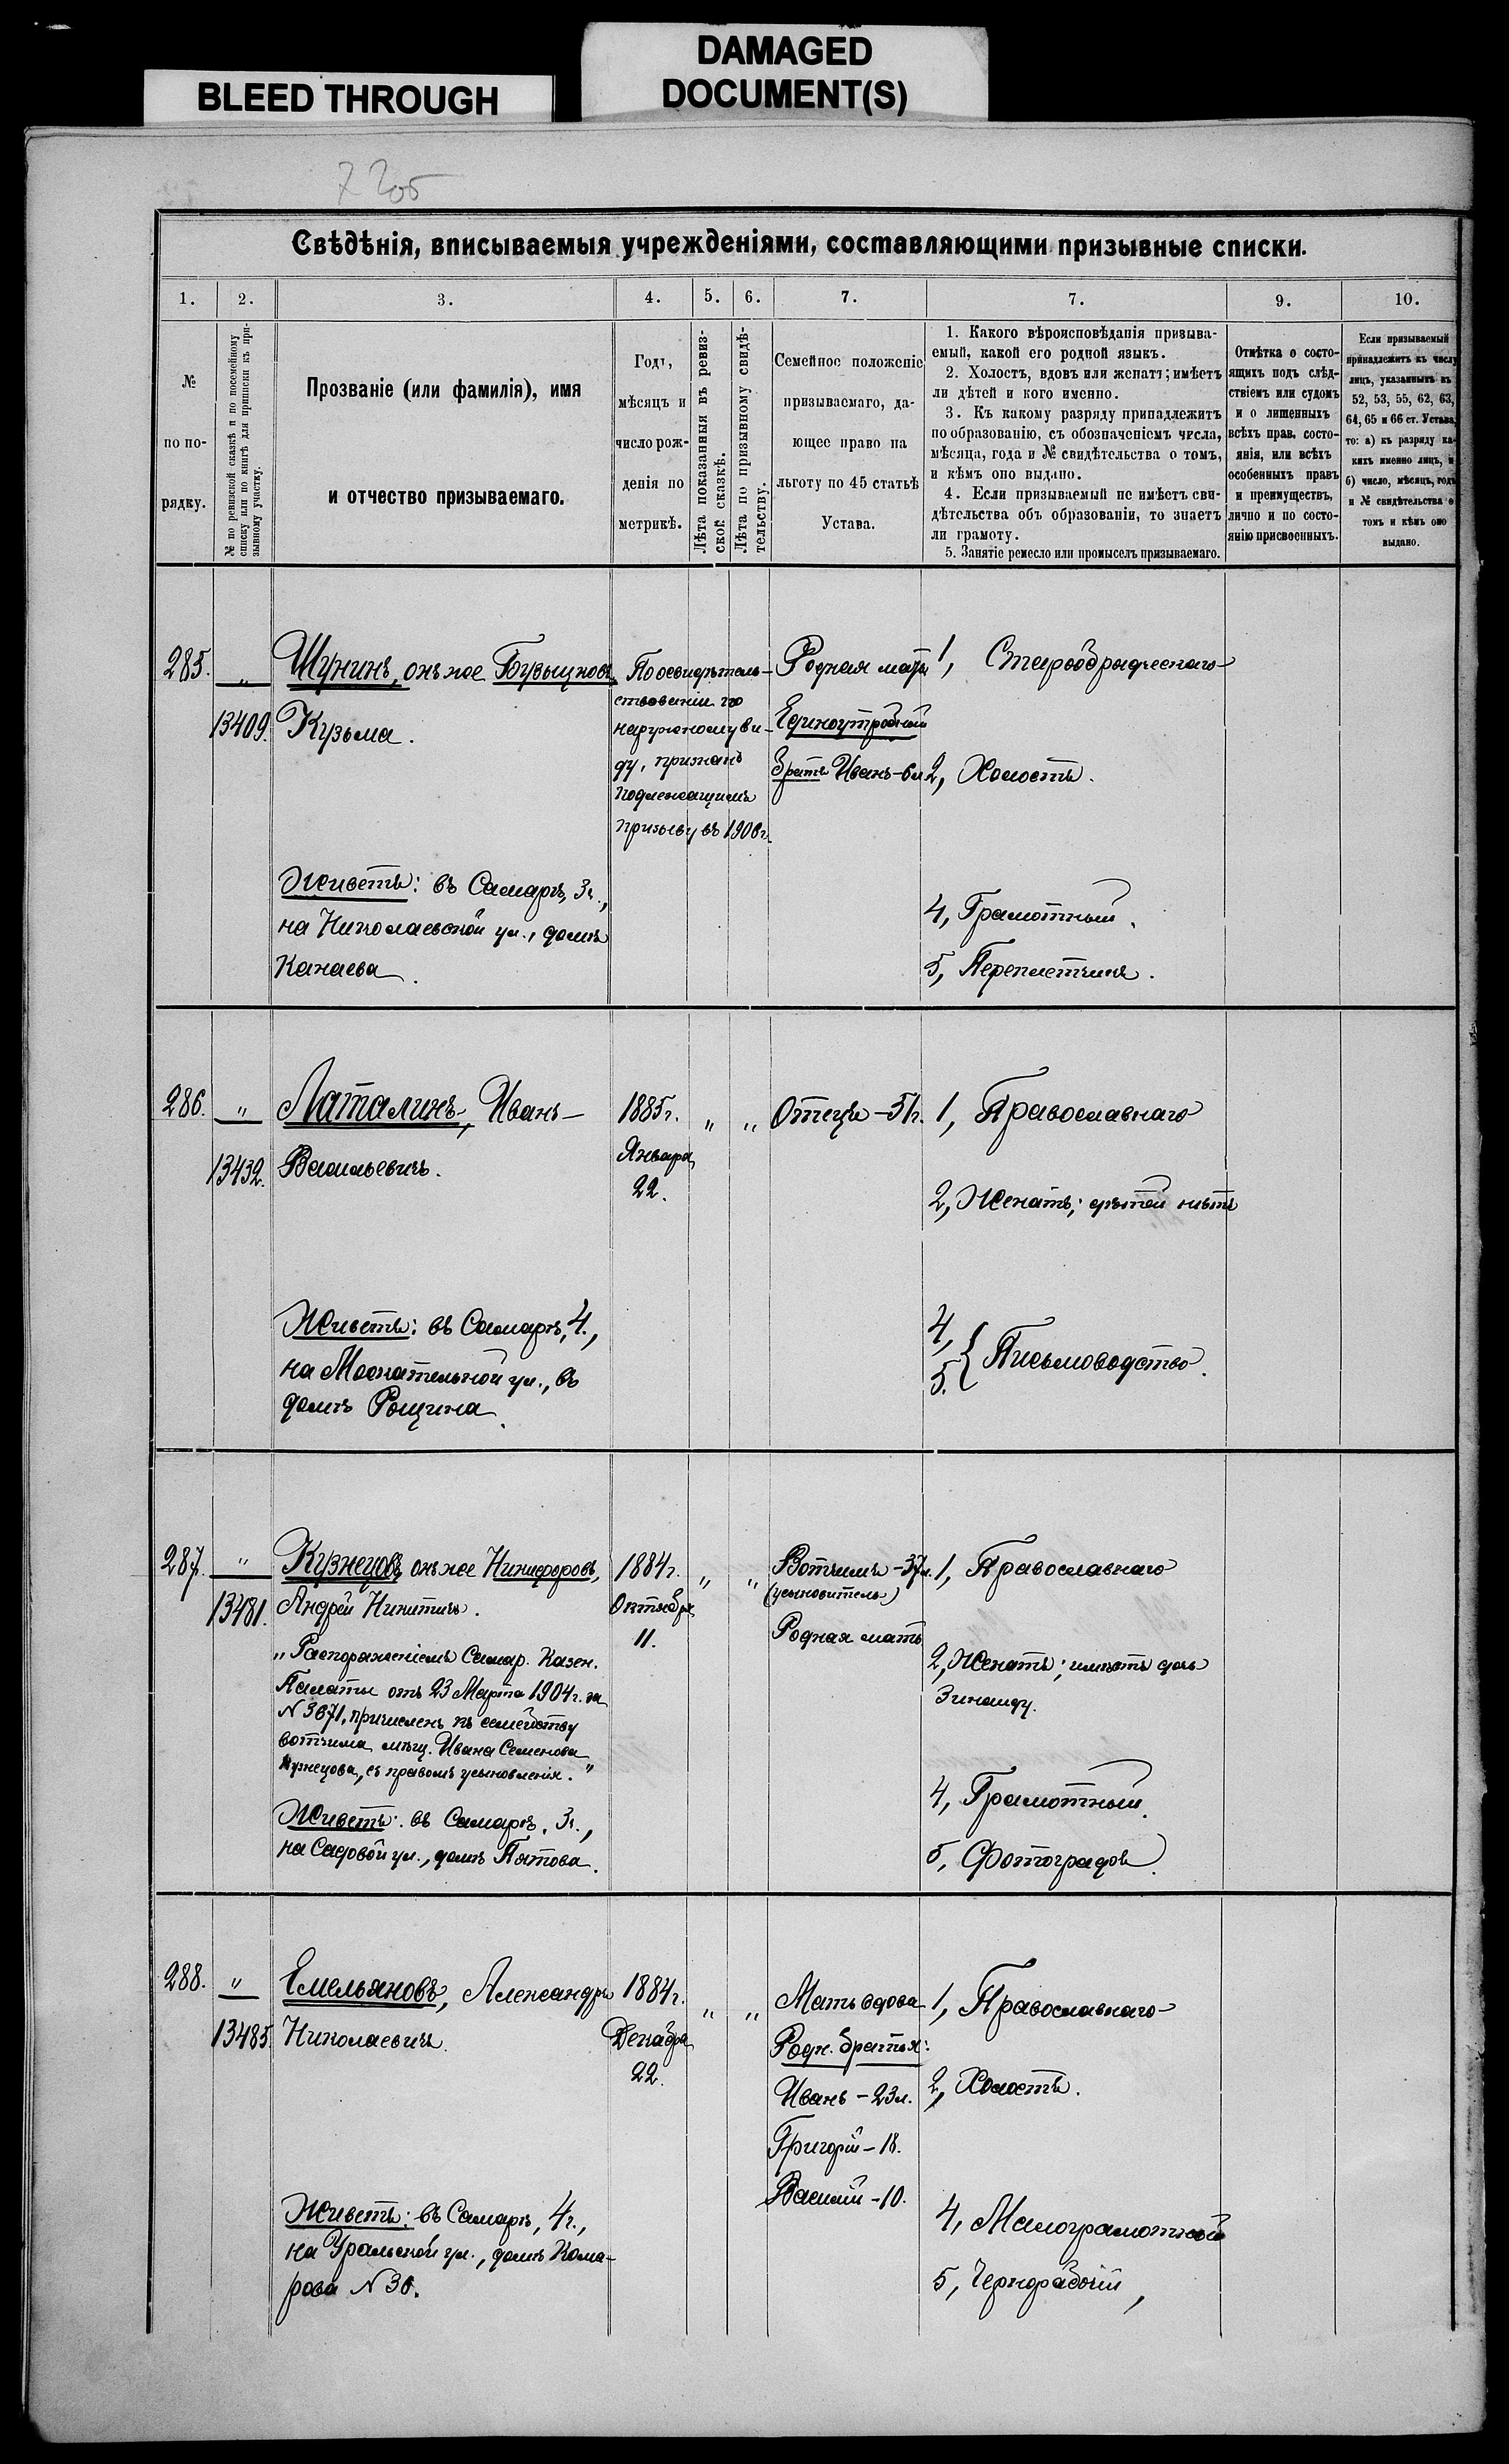 BLEED THROUGH
DAMAGED
DOCUMENT(S)
Свѣдѣнія, вписываемыя учрежденіями, составляющими призывные списки.
1.
2.
3.
4.
5.
6.
7.
7.
9.
10.
№
по по-
рядку.
№ по ревизской сказкѣ и по посемейному
списку или по книгѣ для приписки къ при-
зывному участку.
Прозваніе (или фамилія), имя
и отчество призываемаго.
Годъ,
мѣсяцъ и
число рож-
денія по
метрикѣ.
Лѣта показанныя въ ревиз-
ской сказкѣ.
Лѣта по призывному свидѣ-
тельству.
Семейное положеніе
призываемаго, да-
ющее право на
льготу по 45 статьѣ
Устава.
1. Какого вѣроисповѣданія призыва-
емый, какой его родной языкъ.
2. Холостъ, вдовъ или женатъ; имѣетъ
ли дѣтей и кого именно.
3. Къ какому разряду принадлежитъ
по образованію, съ обозначеніемъ числа,
мѣсяца, года и № свидѣтельства о томъ,
и кѣмъ оно выдано.
4. Если призываемый не имѣетъ сви-
дѣтельства объ образованіи, то знаетъ
ли грамоту.
5. Занятіе ремесло или промыселъ призываемаго.
Отмѣтка о состо-
ящихъ подъ слѣд-
ствіемъ или судомъ
и о лишенныхъ
всѣхъ прав. состо-
янія, или всѣхъ
особенныхъ правъ
и преимуществъ,
лично и по состо-
янію присвоенныхъ.
Если призываемый
принадлежитъ къ числу
лицъ, указанныхъ въ
52, 53, 55, 62, 63,
64, 65 и 66 ст. Устава,
то: а) къ разряду ка-
кихъ именно лицъ, и
б) число, мѣсяцъ, годъ
и № свидѣтельства о
томъ и кѣмъ оно
выдано.
285.
"
13409.
Шунинъ, онъ же Бузыцковъ
Кузьма.
Живетъ: въ Самарѣ, 3ч.,
на Николаевской ул., домъ
Канаева.
По освидѣтель-
ствованіи по
наружному ви-
ду, признанъ
подлежащимъ
призыву въ 1906г.
Родная мать
Единоутробный
братъ Иванъ-6л.
1, Старообрядческаго
2, Холостъ.
4, Грамотный.
5, Переплетчикъ.
286.
"
13432.
Латалинъ, Иванъ
Васильевичъ.
Живетъ: въ Самарѣ, 4.,
на Москательной ул., въ
домѣ Рощина.
1885г.
Января
22.
"
"
Отецъ-51г.
1, Православнаго
2, Женатъ; дѣтей нѣтъ
4,
5. { Письмоводство.
287.
"
13481.
Кузнецовъ, онъ же Никифоровъ,
Андрей Никитичъ.
„Распоряженіемъ Самар. Казен.
Палаты отъ 23 Марта 1904г. за
N 3671, причисленъ къ семейству
вотчима мѣщ. Ивана Семенова
Кузнецова, съ правомъ усыновленія."
Живетъ: въ Самарѣ, 3ч.,
на Садовой ул., домъ Пятова.
1884г.
Октября
11.
"
"
Вотчимъ-37л.
(усыновитель)
Родная мать
1, Православнаго
2, Женатъ; имѣетъ дочь
Зинаиду.
4, Грамотный.
5, Фотографъ.
288.
"
13485.
Емельяновъ, Александръ
Николаевичъ.
Живетъ: въ Самарѣ, 4ч.,
на Уральской ул., домъ Кома-
рова N 36.
1884г.
Декабря
22.
"
"
Мать вдова
Родн. братья:
Иванъ-23л.
Григорій-18.
Василій-10.
1, Православнаго
2, Холостъ.
4, Малограмотный
5, Чернорабочій,